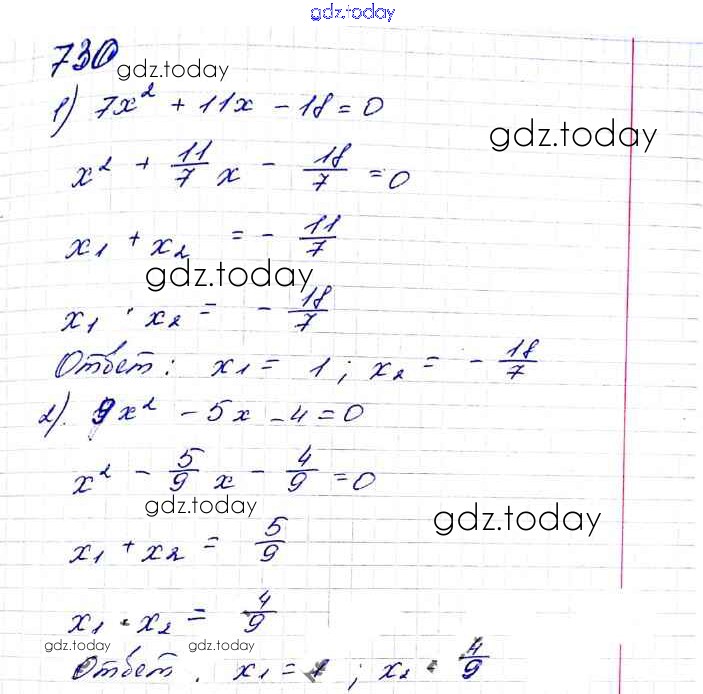 gdz.today
730
gdz.today
1) 7x² + 11x - 18 = 0
gdz.today
x² + 11/7 x - 18/7 = 0
x₁ + x₂ = - 11/7
gdz.today
x₁ · x₂ = - 18/7
Ответ: x₁ = 1; x₂ = - 18/7
2). 9x² - 5x - 4 = 0
x² - 5/9 x - 4/9 = 0
gdz.today
gdz.today
x₁ + x₂ = 5/9
x₁ · x₂ = -4/9
gdz.today gdz.today
Ответ. x₁ = 1; x₂ = 4/9